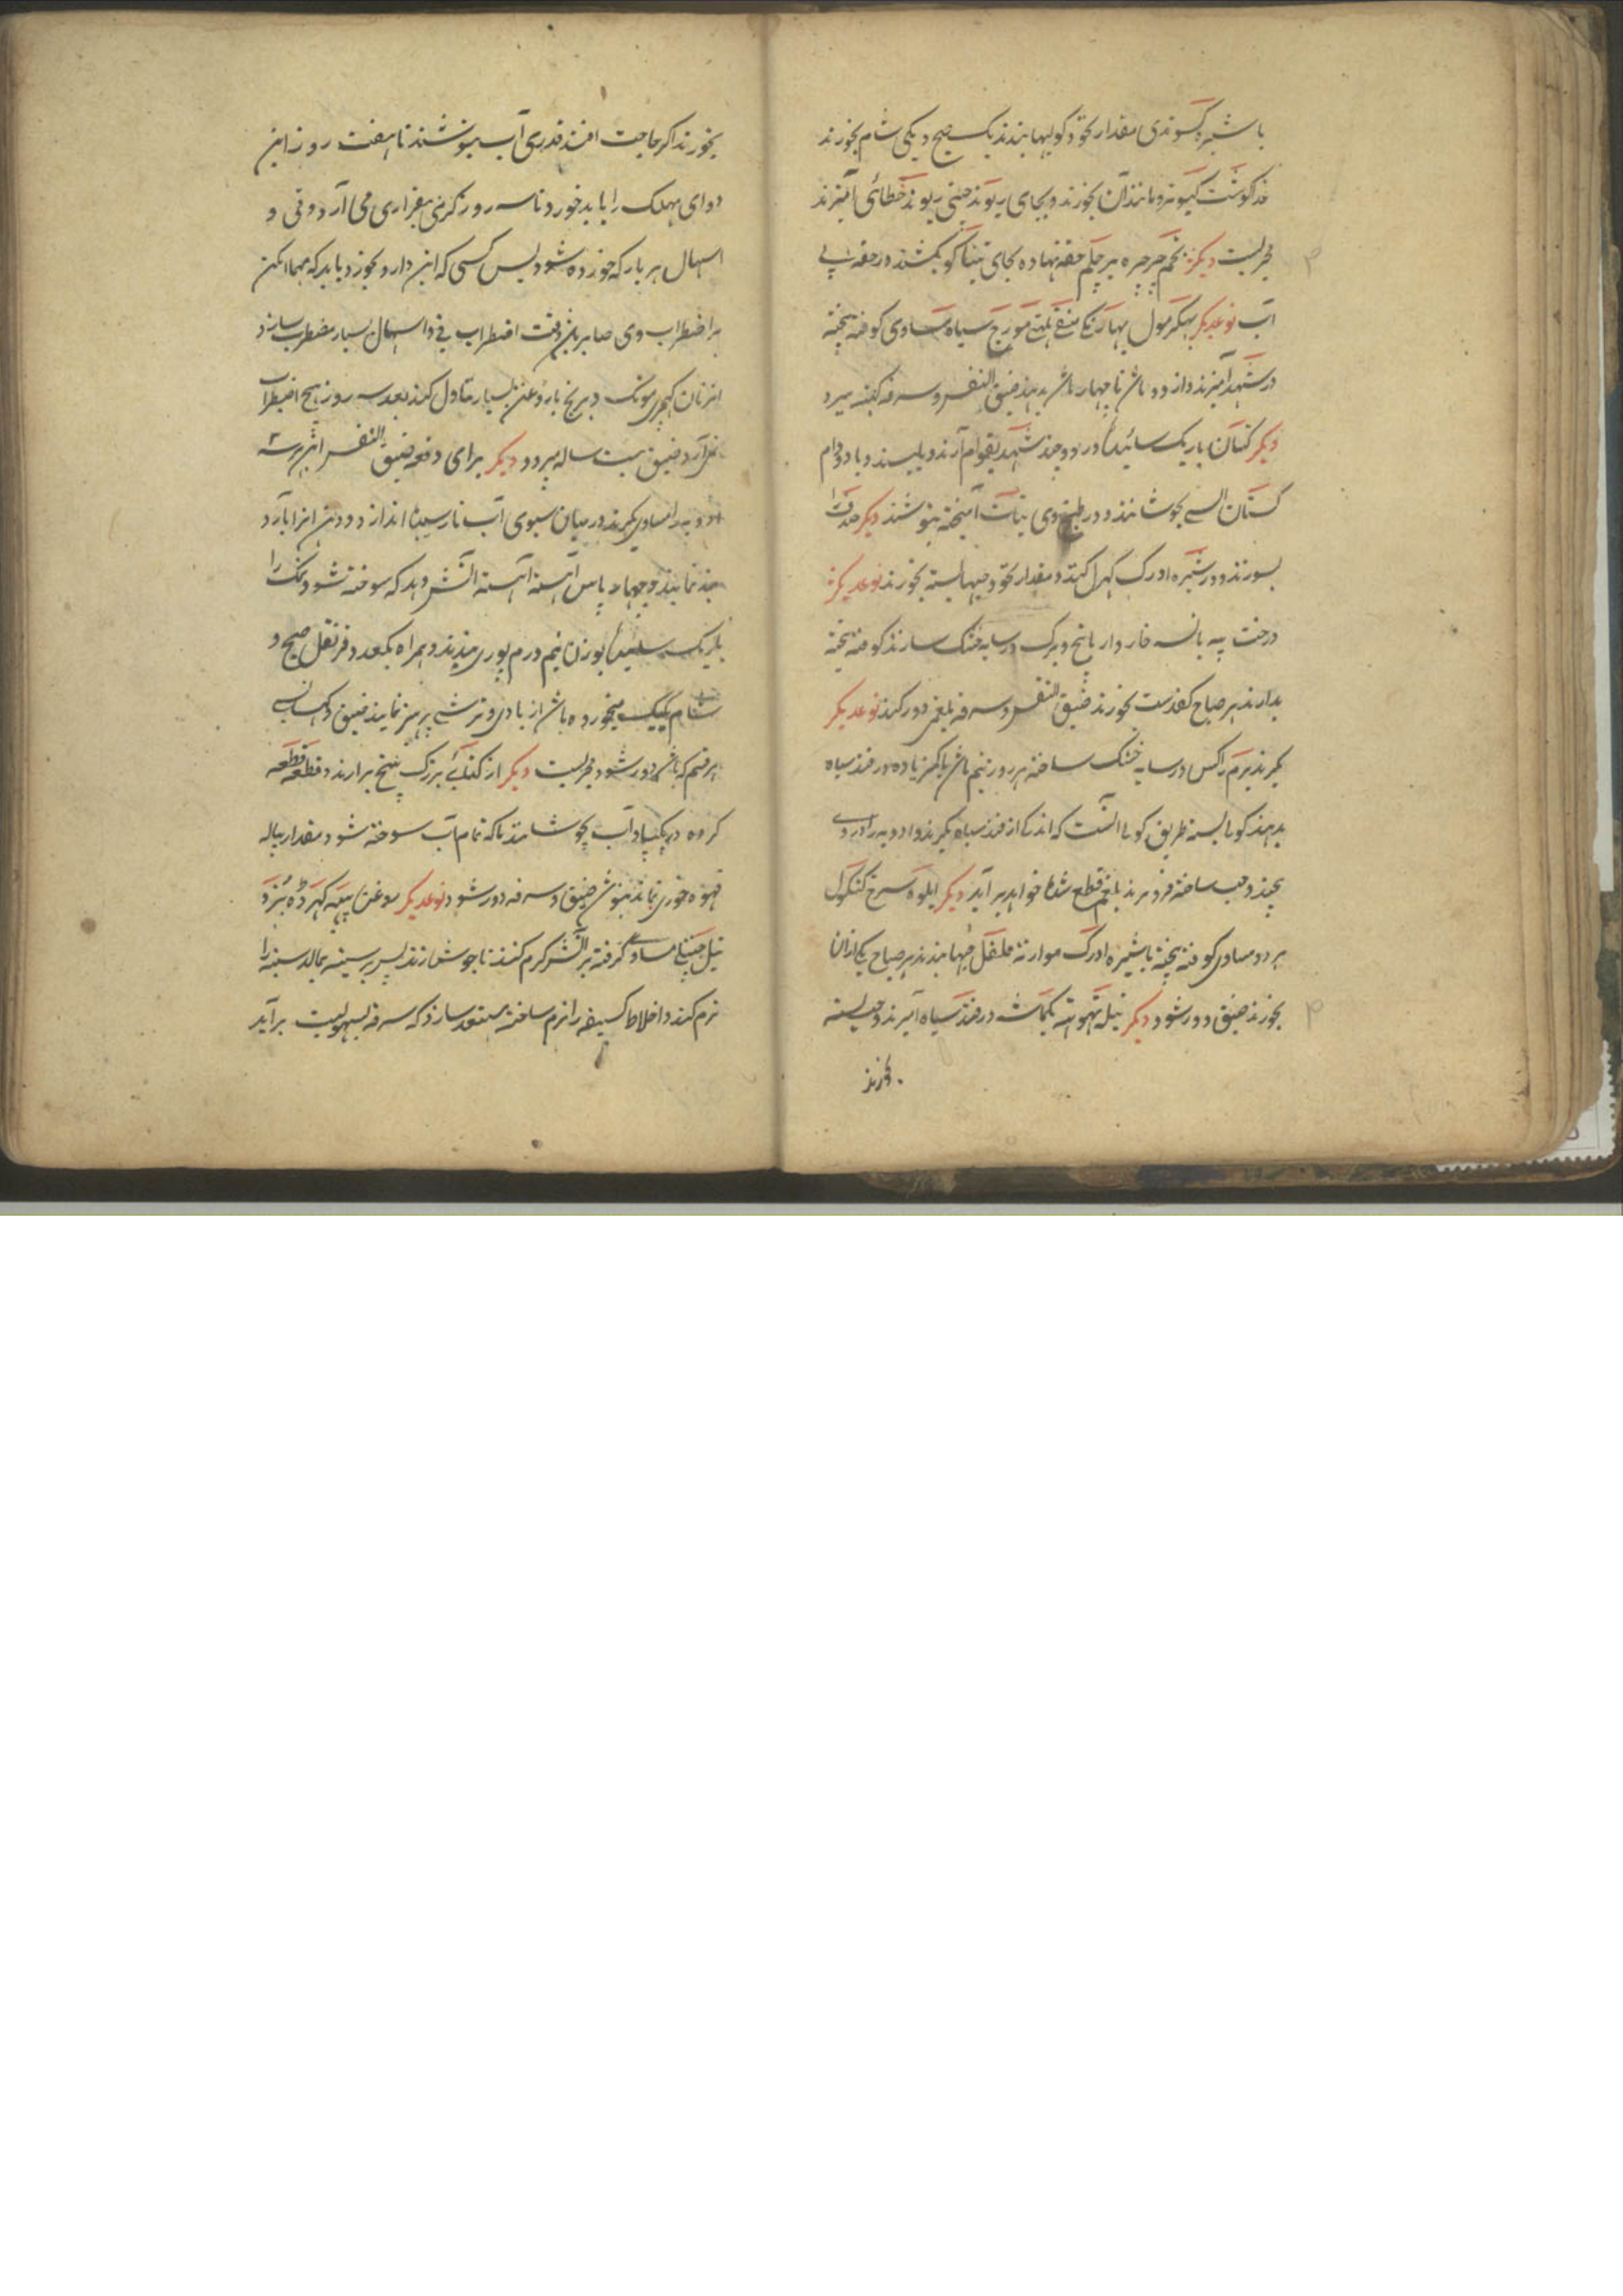 با شیره کسوندی مقدار نخود کولیها بندند یک صبح و یکی شام بخورند
کوشت کبوتر و مانند آن بخورند و بجای ریوند چینی ریوند خطائی آمیزند
مجربست دیکر تخم جرجره بر چلم حقه نهاده بجای تنباکو بکشند در حقه بی
آب نوعدیکر پهکرمول بهارنکی سیاه مساوی کوفته پیخته
در شهد آمیزند و از دو ماش تا چهار ماش بدهند ضیق النفس و سرفه کهنه ببرد
دیکر کتان باریک سائیده در دو چند شهد بقوام آرند و بلیسند و یا دو دام
کتان السی بجوشانند و در طبخ وی نبات آمیخته بنوشند دیکر صدف را
بسوزند و در شیره ادرک کهرل کنند و مقدار نخود حبها بسته بخورند نوعدیکر
درخت خاردار با بیخ و برک در سایه خشک سازند کوفته پیخته
بدارند هر صباح کفدست بخورند ضیق النفس و سرفه بلغمی دور کند نوعدیکر
بکیرند در سایه خشک ساخته هر روز نیم ماش یا کم زیاده در قند سیاه
بدهند کولی بسته طریق کولی آنست که اندکی از قند سیاه بکیرند و ادویه را در وی
پیچند و حب ساخته فرو برند بلغم قطع شده خواهد بر آید دیکر ایلوه سرخ کتکول
هر دو مساوی کوفته پیخته با شیره ادرک موازنه فلفل حبها بندند هر صباح یکی ازان
بخورند ضیق دور شود دیکر نیله تهوتهه یکماشه در قند سیاه آمیزند و حب بسته
بخورند
بخورند اکر حاجت افتد قدری آب بنوشند تا هفت روز این
دوای مهلک را باید خورد تا سه روز کرمی بیقراری می آرد و قی و
اسهال هر بار که خورده شود پس کسی که این دارو بخورد باید که مهما امکن
بر اضطراب وی صابر باش وقت اضطراب قی و اسهال بسیار مضطرب سازد
نان کهچری مونک و برنج با روغن بسیار تناول کند بعد سه روز هیچ اضطراب
نمی آرد ضیق بیست ساله ببرد و دیکر برای دفع ضیق النفس این هر سه
ادویه را مساوی بکیرند در میان سبوی آب نارسیده اندازد و دهن آنرا بآرد
بند نمایند و چهار پاس آهسته آهسته آتش دهد که سوخته شود نمک را
باریک سائیده بوزن نیم درم پوری بندند و همراه یکعدد قرنفل صبح و
شام یکیک میخورده باش از بادی و ترشی پرهیز نمایند ضیق و کهانسی
هر قسم که باش دور شود مجربست دیکر از کتائی بزرک بیخ برارند و قطعه قطعه
کرده در آب بجوشانند تا که تمام آب سوخته شود مقدار پیاله
قهوه خوری بماند بنوش ضیق و سرفه دور شود نوعدیکر روغن
تیل چنبیلی مساوی کرفته بر آتش کرم کنند تا جوش زند پس بر سینه بمالد سینه را
نرم کند و اخلاط کسیفه را نرم ساخته مستعد سازد که سرفه بسهولیت بر آید